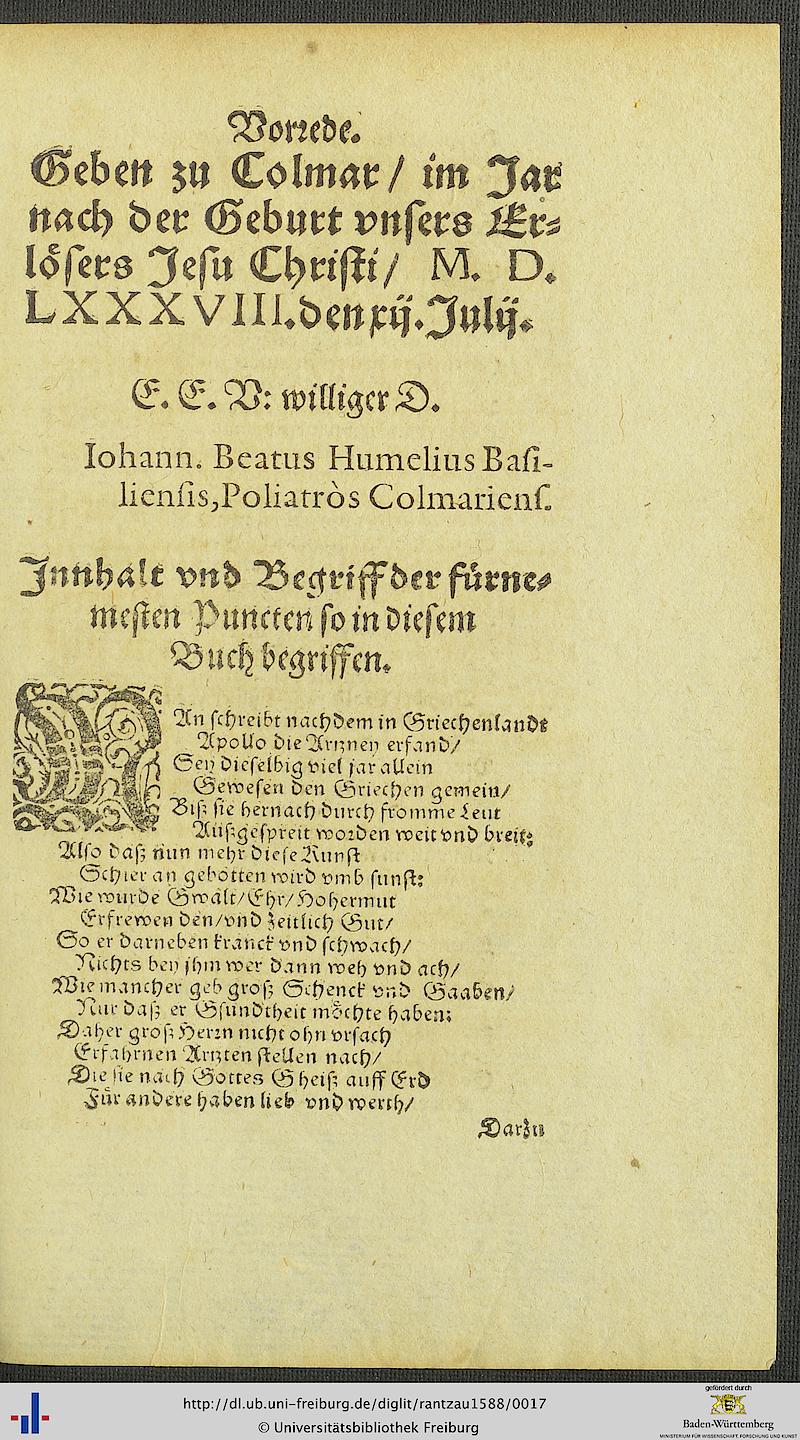 Vorrede.
Geben zu Colmar / im Jar
nach der Geburt vnsers Er⸗
lösers Jesu Christi / M. D.
LXXXVIII. den xij. Julij.
E. E. V: williger D.
Iohann. Beatus Humelius Basi-
liensis, Poliatròs Colmariens.
Jnnhalt vnd Begriff der fürne⸗
mesten Puncten so in diesem
Buch begriffen.
MAn schreibt nachdem in Griechenlandt
Apollo die Artzney erfand /
Sey dieselbig viel jar allein
Gewesen den Griechen gemein /
Biß sie hernach durch fromme Leut
Außgespreit worden weit vnd breit:
Also daß nun mehr diese Kunst
Schier an gebotten wird vmb sunst:
Wie wurde Gwalt / Ehr / Hohermut
Erfrewen den / vnd zeitlich Gut /
So er darneben kranck vnd schwach /
Nichts bey jhm wer dann weh vnd ach /
Wie mancher geb groß Schenck vnd Gaaben /
Nur daß er Gsundtheit möchte haben:
Daher groß Herrn nicht ohn vrsach
Erfahrnen Artzten stellen nach /
Die sie nach Gottes Gheiß auff Erd
Für andere haben lieb vnd werth /
Darzu
http://dl.ub.uni-freiburg.de/diglit/rantzau1588/0017
© Universitätsbibliothek Freiburg
gefördert durch
Baden-Württemberg
MINISTERIUM FÜR WISSENSCHAFT, FORSCHUNG UND KUNST